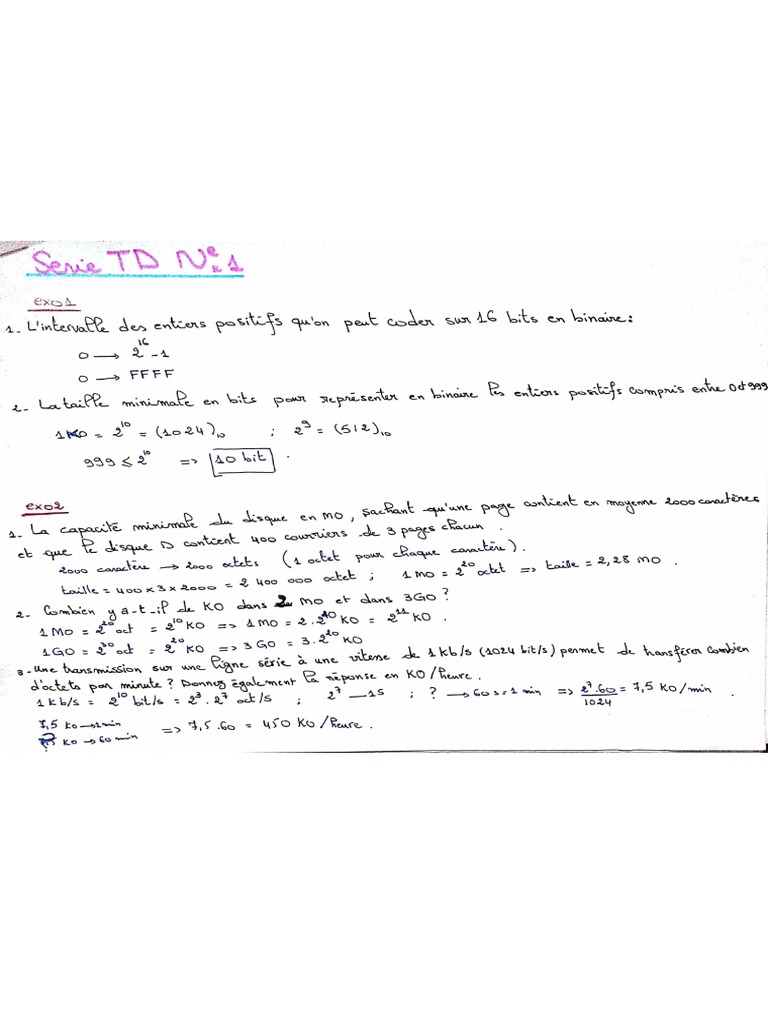 Serie TD N° 1
exo1
1 - L'intervalle des entiers positifs qu'on peut coder sur 16 bits en binaire :
0 → 2^16 - 1
0 → FFFF
2 - La taille minimale en bits pour représenter en binaire les entiers positifs compris entre 0 et 999
1KO = 2^10 = (1024)10 ; 2^9 = (512)10
999 ≤ 2^10 => 10 bit .
exo2
1 - La capacité minimale du disque en MO, sachant qu'une page contient en moyenne 2000 caractères
et que le disque D contient 400 courriers de 3 pages chacun .
2000 caractère → 2000 octets (1 octet pour chaque caractère).
taille = 400 x 3 x 2000 = 2 400 000 octet ; 1 MO = 2^20 octet => taille = 2,28 MO .
2 - Combien y a-t-il de KO dans 2 MO et dans 3GO ?
1 MO = 2^20 oct = 2^10 KO => 1 MO = 2.2^10 KO = 2^11 KO .
1GO = 2^30 oct = 2^20 KO => 3 GO = 3.2^20 KO
3 - Une transmission sur une ligne série à une vitesse de 1 Kb/s (1024 bit/s) permet de transférer combien
d'octets par minute ? Donnez également la réponse en KO/heure .
1 kb/s = 2^10 bit/s = 2^3 . 2^7 oct/s ; 2^7 — 1s ; ? → 60 s = 1 min => 2^7.60/1024 = 7,5 KO/min .
7,5 KO → 1 min
? KO → 60 min => 7,5 . 60 = 450 KO/heure .